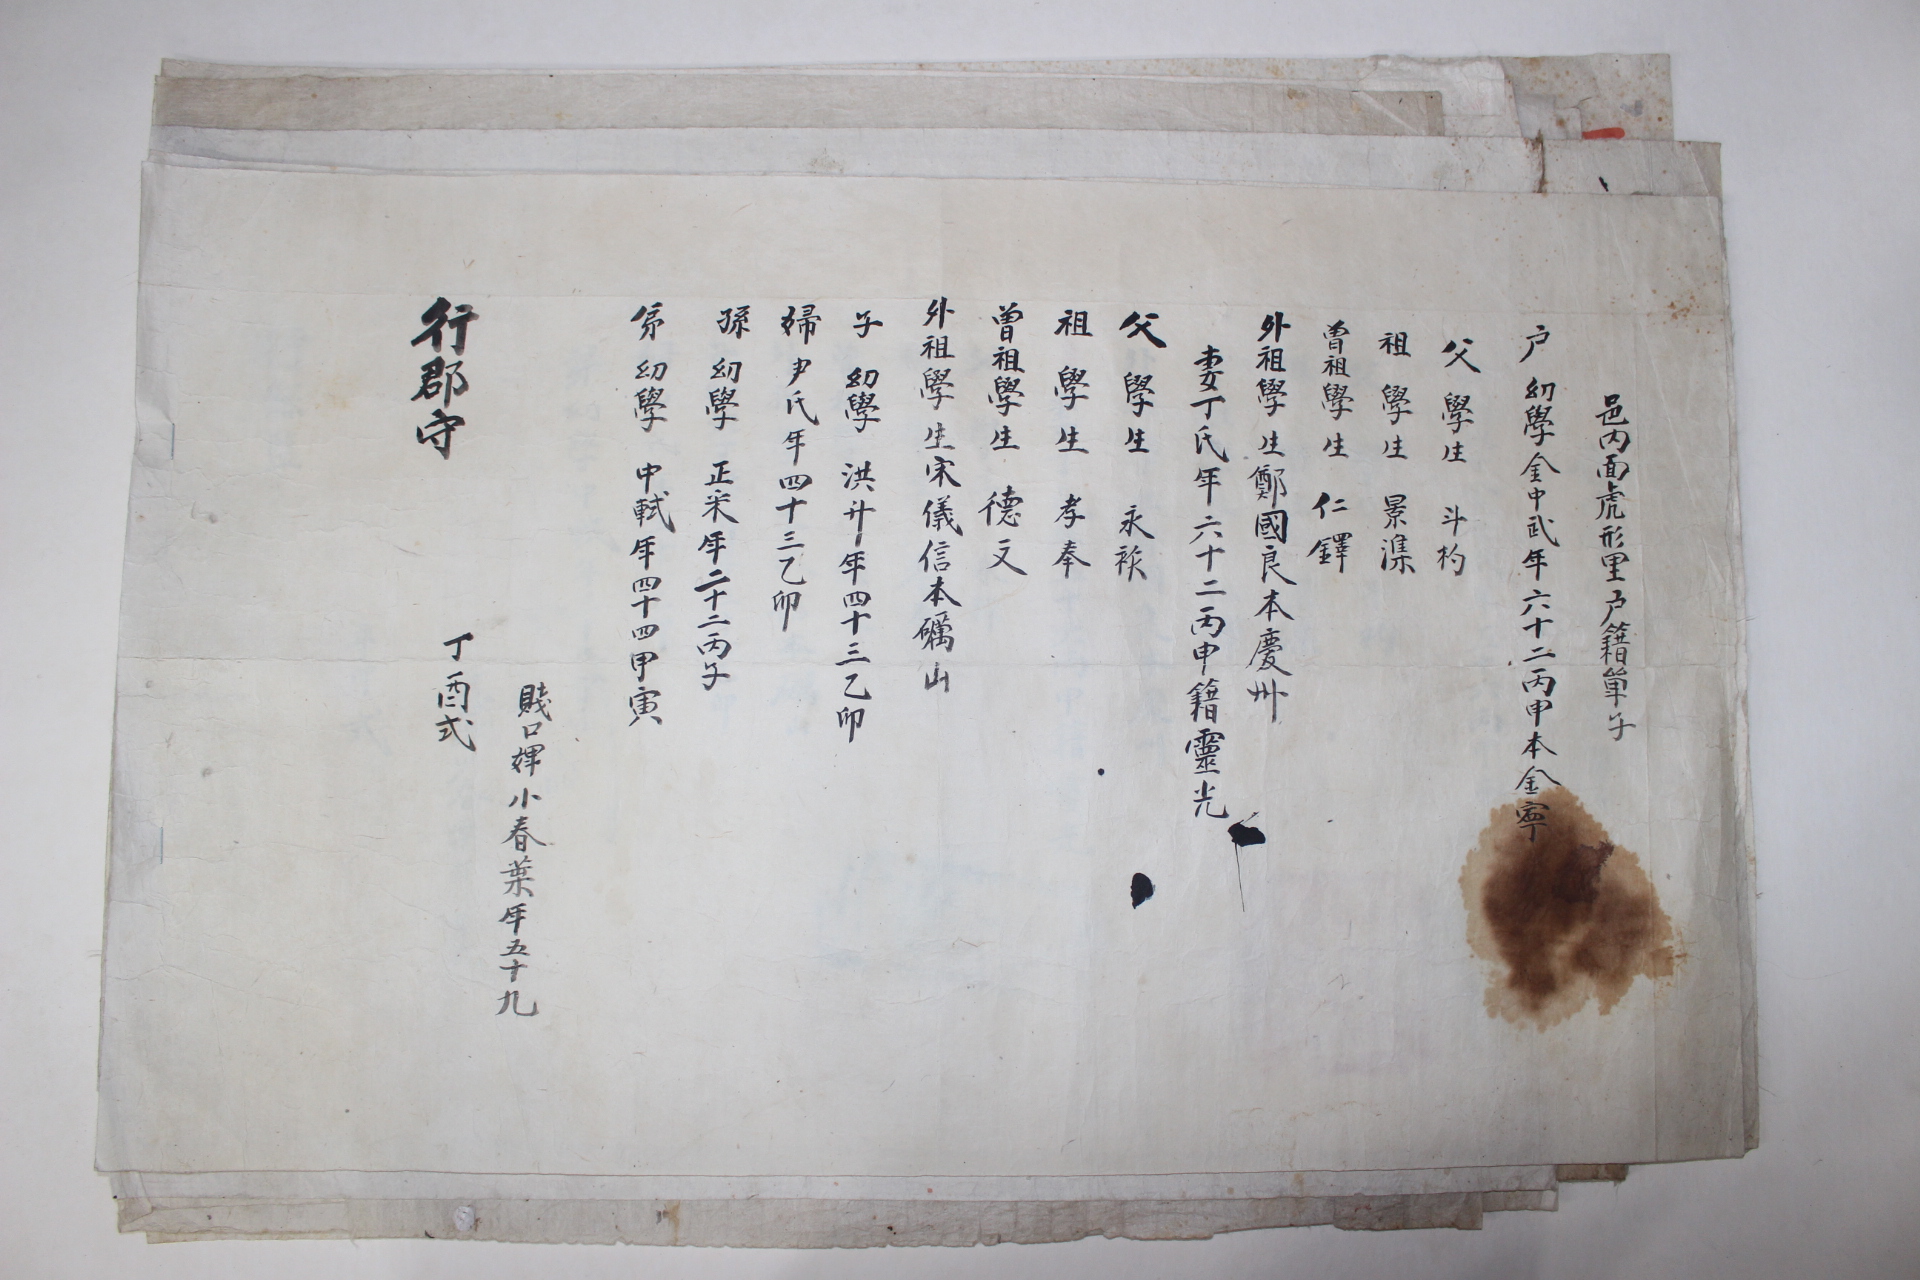 邑內面虎形里戶籍單子
戶 幼學金中武年六十二丙申本金寧
父 學生 斗杓
祖 學生 景漢
曾祖學生 仁鐸
外祖學生鄭國良本慶州
妻丁氏年六十二丙申籍靈光
父 學生 永
祖 學生 孝奉
曾祖學生 德文
外祖學生宋儀信本礪山
子 幼學 洪升年四十三乙卯
婦尹氏年四十三乙卯
孫 幼學 正采年二十二丙子
弟 幼學 中軾年四十四甲寅
賤口婢小春葉年五十九
行郡守 丁酉式